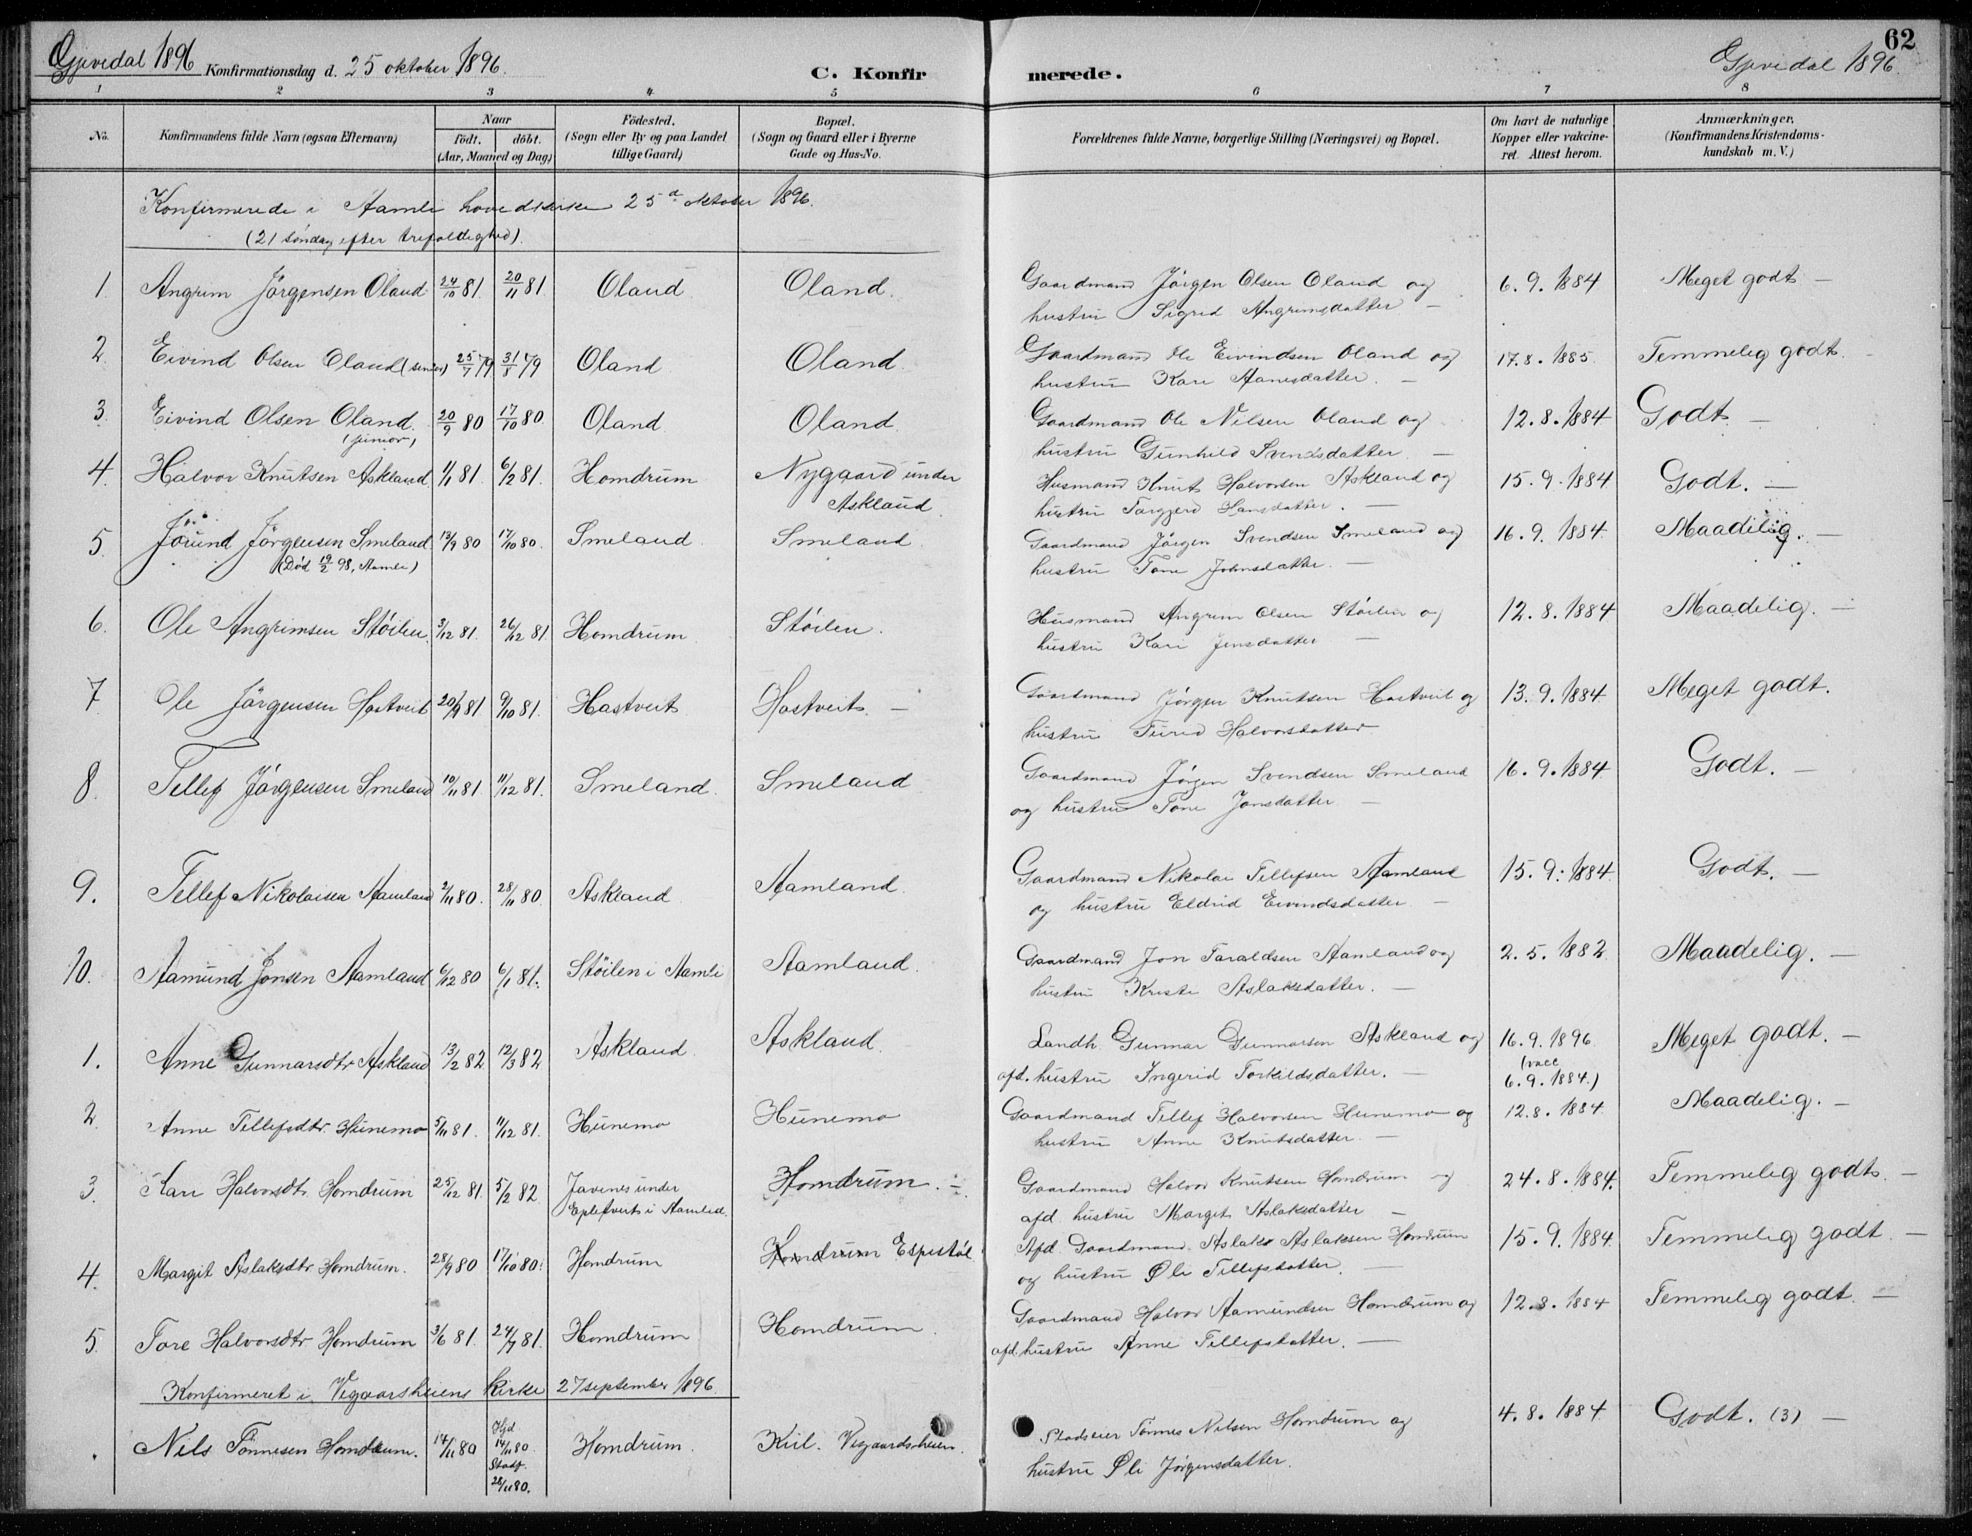 62
Gjevedal 1896 Konfirmationsdag d. 25 oktober 1896. C. Konfirmerede. Gjevedal 1896
1 2 3 4 5 6 7 8
No. Konfirmandens fulde Navn (ogsaa Efternavn) Naar födt. döbt. (Aar, Maaned og Dag) Födested. (Sogn eller By og paa Landet tillige Gaard) Bopæl. (Sogn og Gaard eller i Byerne Gade og Hus-No. Forældrenes fulde Navne, borgerlige Stilling (Næringsvei) og Bopæl. Om havt de naturlige Kopper eller vakcineret. Attest herom. Anmærkninger. (Konfirmandens Kristendomskundskab m. V.)
Konfirmerede i Aamli hovedkirke 25de oktober 1896.
(21 söndag efter trefoldighed).
1 Angrim Jörgensen Oland 24/10 81. 20/11 81 Oland Oland. Gaardmand Jörgen Olsen Oland og 6.9.1884 Meget godt —
hustru Sigrid Angrimsdatter —
2. Eivind Olsen Oland (senior) 25/7 79 31/8 79 Oland Oland. Gaardmand Ole Eivindsen Oland og 17.8.1885. Temmelig godt.
hustru Kari Aanesdatter. —
3. Eivind Olsen Oland 20/9 80 17/10 80 Oland Oland. Gaardmand Ole Nilsen Oland og 12.8.1884 Godt —
(junior) hustru Gunhild Svendsdatter. —
4. Halvor Knutsen Askland 1/1 81 6/2 81 Homdrum Nygaard under Husmand Knut Halvorsen Askland og 15.9.1884 Godt. —
Askland. hustru Targjerd Hansdatter. —
5. Jörund Jörgensen Smeland 12/9 80 17/10 80. Smeland Smeland Gaardmand Jörgen Svendsen Smeland og 16.9.1884 Maadelig. —
(Död 19/2 98, Aamli) hustru Tone Johnsdatter. —
6. Ole Angrimsen Stöilen 3/12 81. 26/12 81 Homdrum Stöilen. Husmand Angrim Olsen Stöilen og 12.8.1884 Maadelig. —
hustru Kari Jensdatter —
7 Ole Jörgensen Hastveit 20/9 81 9/10 81. Hastveit Hastveit. — Gaardmand Jörgen Knutsen Hastveit og 13.9.1884 Meget godt.
hustru Turid Halvorsdatter
8. Tellef Jörgensen Smeland 10/11 81 11/12 81. Smeland. Smeland Gaardmand Jörgen Svendsen Smeland 16.9.1884 Godt. —
og hustru Tone Jonsdatter —
9. Tellef Nikolaisen Aamland 2/11 80. 28/11 80 Askland Aamland. Gaardmand Nikolai Tellefsen Aamland 15.9.1884 Godt. —
og hustru Eldrid Eivindsdatter. —
10. Aamund Jonsen Aamland 6/12 80 6/1 81. Stöilen i Aamli Aamland. Gaardmand Jon Taraldsen Aamland og 2.5.1882 Maadelig. —
hustru Kristi Aslaksdatter. —
1. Anne Gunnarsdtr Askland 13/2 82 12/3 82 Askland Askland. Landh. Gunnar Gunnarsen Askland og 16.9.1896 Meget godt. —
afd. hustru Ingerid Torkildsdatter. — (vacc
6.9.1884.)
2 Anne Tellefsdtr. Hunemo 5/11 81. 11/12 81. Hunemo Hunemo Gaardmand Tellef Halvorsen Hunemo og 12.8.1884 Maadelig. —
hustru Anne Knutsdatter. —
3. Kari Halvorsdtr. Homdrum 25/12 81. 5/2 82 Javenes under Homdrum. — Gaardmand Halvor Knutsen Homdrum og 24.8.1884. Temmelig godt. —
Eplestveit i Aamlid. afd. hustru Margit Aslaksdatter —
4. Margit Aslaksdtr Homdrum. 28/9 80 17/10 80. Homdrum Homdrum Espestöl Afd. Gaardmand Aslak Aslaksen Homdrum 15.9.1884 Temmelig godt —
og hustru Öli Tellefsdatter. —
5. Tore Halvorsdtr Homdrum 3/6 81. 24/7 81. Homdrum Homdrum. Gaardmand Halvor Aamundsen Homdrum og 12.8.1884 Temmelig godt. —
afd. hustru Anne Tellefsdatter. —
Konfirmeret i Vegaarsheiens kirke 27 september 1896
. Nils Tönnesen Homdrum. 14/11 80 Hjd 14/11 80. Stadf. 28/11 80. Homdrum. Kiil. Vegaardsheien. Pladseier Tönnes Nilsen Homdrum og 4.8.1884 Godt. (3) —
hustru Öli Jörgensdatter.